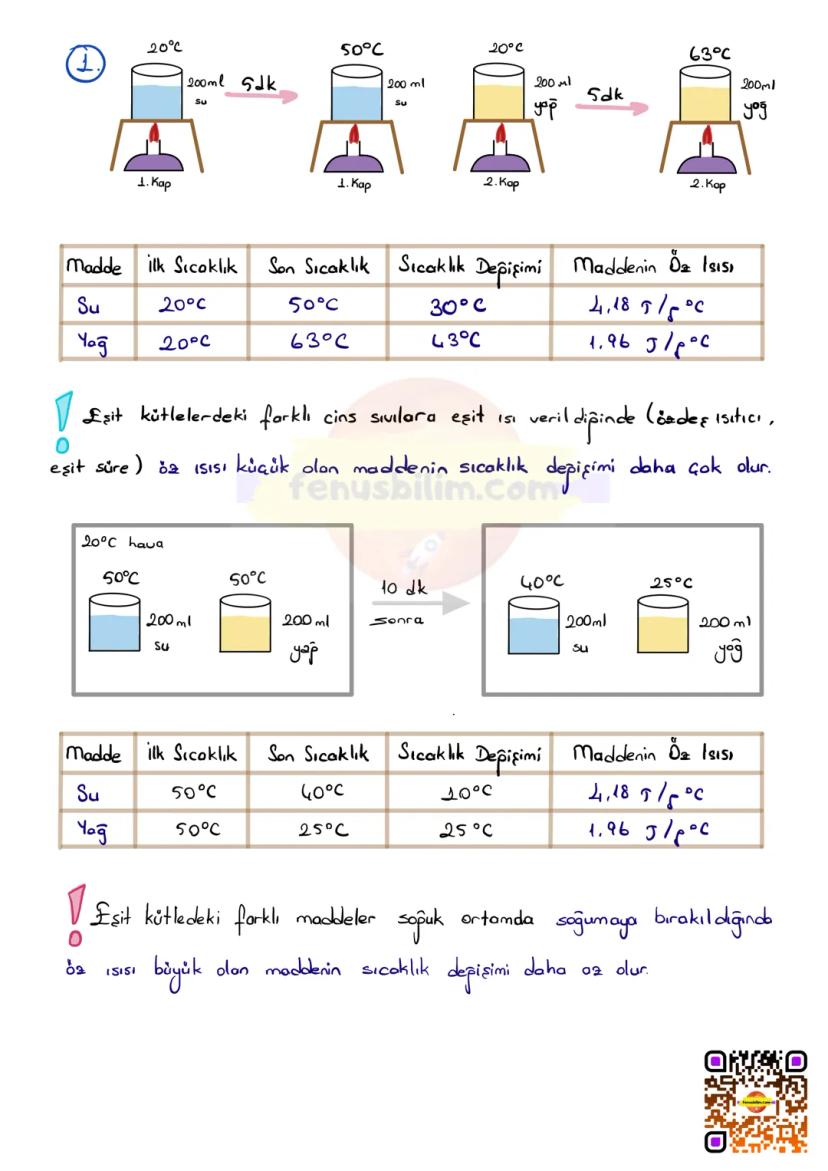 1.
20°C
50°C
20°C
63°C
200ml su
5dk
200 ml su
200 ml yağ
5dk
200ml yağ
1. Kap
1. Kap
2. Kap
2. Kap
Madde İlk Sıcaklık Son Sıcaklık Sıcaklık Değişimi Maddenin Öz Isısı
Su 20°C 50°C 30°C 4,18 J/g°C
Yağ 20°C 63°C 43°C 1.96 J/g°C
! Eşit kütlelerdeki farklı cins sıvılara eşit ısı verildiğinde (özdeş ısıtıcı,
eşit süre) öz ısısı küçük olan maddenin sıcaklık değişimi daha çok olur.
fenusbilim.com
20°C hava
50°C
50°C
10 dk
sonra
40°C
25°C
200ml su
200 ml yağ
200ml su
200 ml yağ
Madde İlk Sıcaklık Son Sıcaklık Sıcaklık Değişimi Maddenin Öz Isısı
Su 50°C 40°C 10°C 4,18 J/g°C
Yağ 50°C 25°C 25°C 1.96 J/g°C
! Eşit kütledeki farklı maddeler soğuk ortamda soğumaya bırakıldığında
öz ısısı büyük olan maddenin sıcaklık değişimi daha az olur.
fenusbilim.com